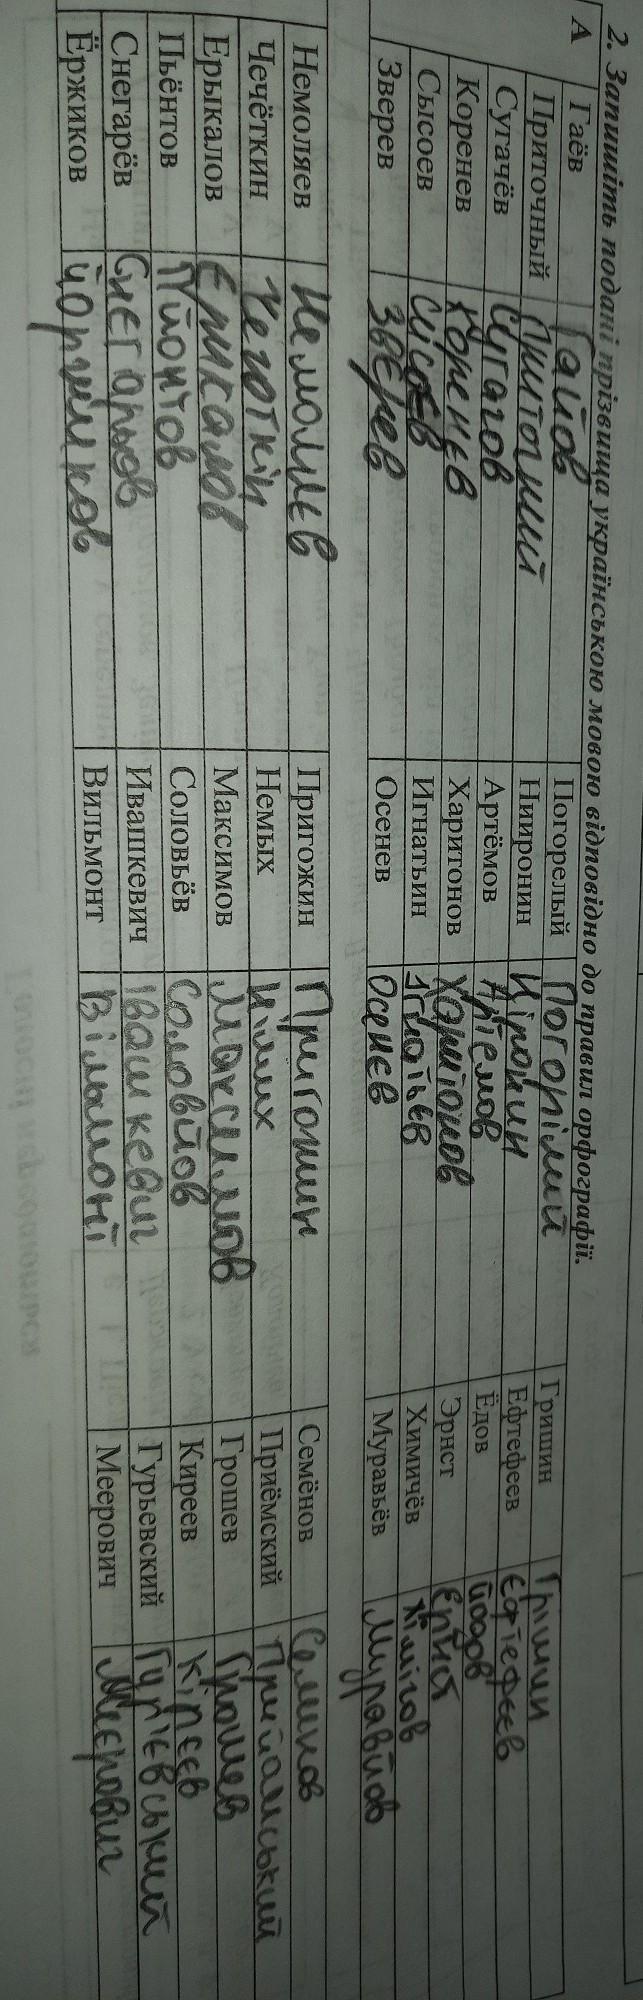 2. Запишіть подані прізвища українською мовою відповідно до правил орфографії.
А Гаёв Гайов Погорелый Погорілий Гришин Гришин
Приточный Приточний Нииронин Ніронин Ефтефеев Єфтефєєв
Сугачёв Сугачов Артёмов Артемов Ёдов Йодов
Коренев Коренєв Харитонов Харитонов Эрнст Ернст
Сысоев Сисоєв Игнатьин Химичёв Хімічов
Зверев Звєрев Осенев Осенєв Муравьёв Муравйов
Немоляев Немоляєв Пригожин Пригожин Семёнов Семенов
Чечёткин Чечоткін Немых Німих Приёмский Прийомський
Ерыкалов Єрикалов Максимов Максимов Грошев Грошев
Пьёнтов Пйонтов Соловьёв Соловйов Киреев Кірєєв
Снегарёв Снєгарьов Ивашкевич Івашкевич Гурьевский Гур'євський
Ёржиков Йоржиков Вильмонт Вільмонт Меерович Меєрович